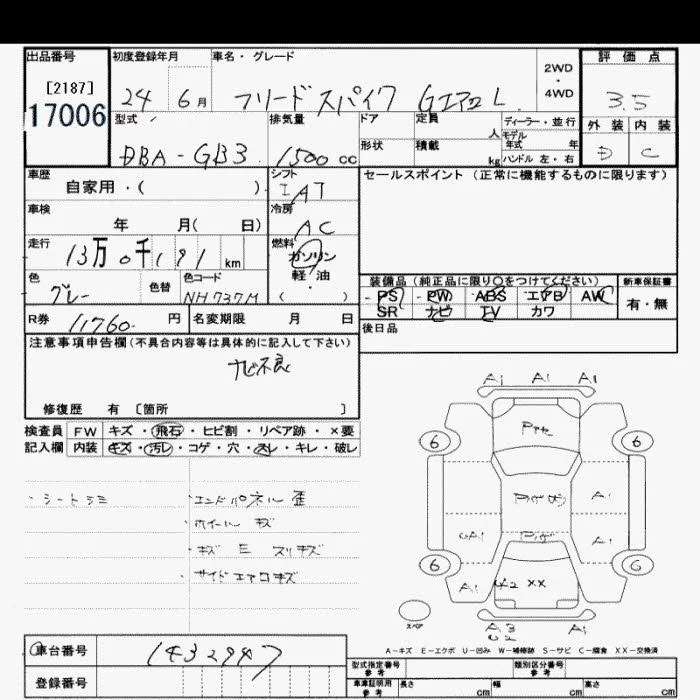 出品番号
[2187]
17006
初度登録年月
24 6月
車名・グレード
フリードスパイク Gエアロ L
2WD
・
4WD
評価点
3.5
型式
DBA-GB3
排気量
1500 cc
ドア
定員
人
ディーラー・並行
モデル年式 年
形状
積載
kg
ハンドル 左・右
外装 内装
D C
車歴
自家用・( )
シフト
IAT
セールスポイント (正常に機能するものに限ります)
車検
年 月( 日)
冷房
AC
走行
13万0千191 km
燃料
ガソリン
軽・油
・
( )
色
グレー
色替
色コード
NH737M
装備品 (純正品に限り○をつけてください)
PS PW ABS エアB AW
SR ナビ TV カワ
新車保証書
有・無
R券
11760 円
名変期限 月 日
後日品
注意事項申告欄(不具合内容等は具体的に記入して下さい)
ナビ不良
修復歴 有 〔箇所 〕
検査員 FW キズ・飛石・ヒビ割・リペア跡・×要
記入欄 内装 キズ・汚レ・コゲ・穴・スレ・キレ・破レ
・シートシミ
・エンドパネル 歪
・ホイール キズ
・キズ E スリキズ
・サイドエアロキズ
A1 A1 A1
6
6
A1
UA1
A1
6
6
A1
U2
XX
スペア
A3
U2
A1
A-キズ E-エクボ U-凹み W-補修跡 S-サビ C-腐食 XX-交換済
車台番号
1432947
登録番号
型式指定番号
参考
類別区分番号
参考
車庫証明用
参考
長さ cm
幅 cm
高さ cm